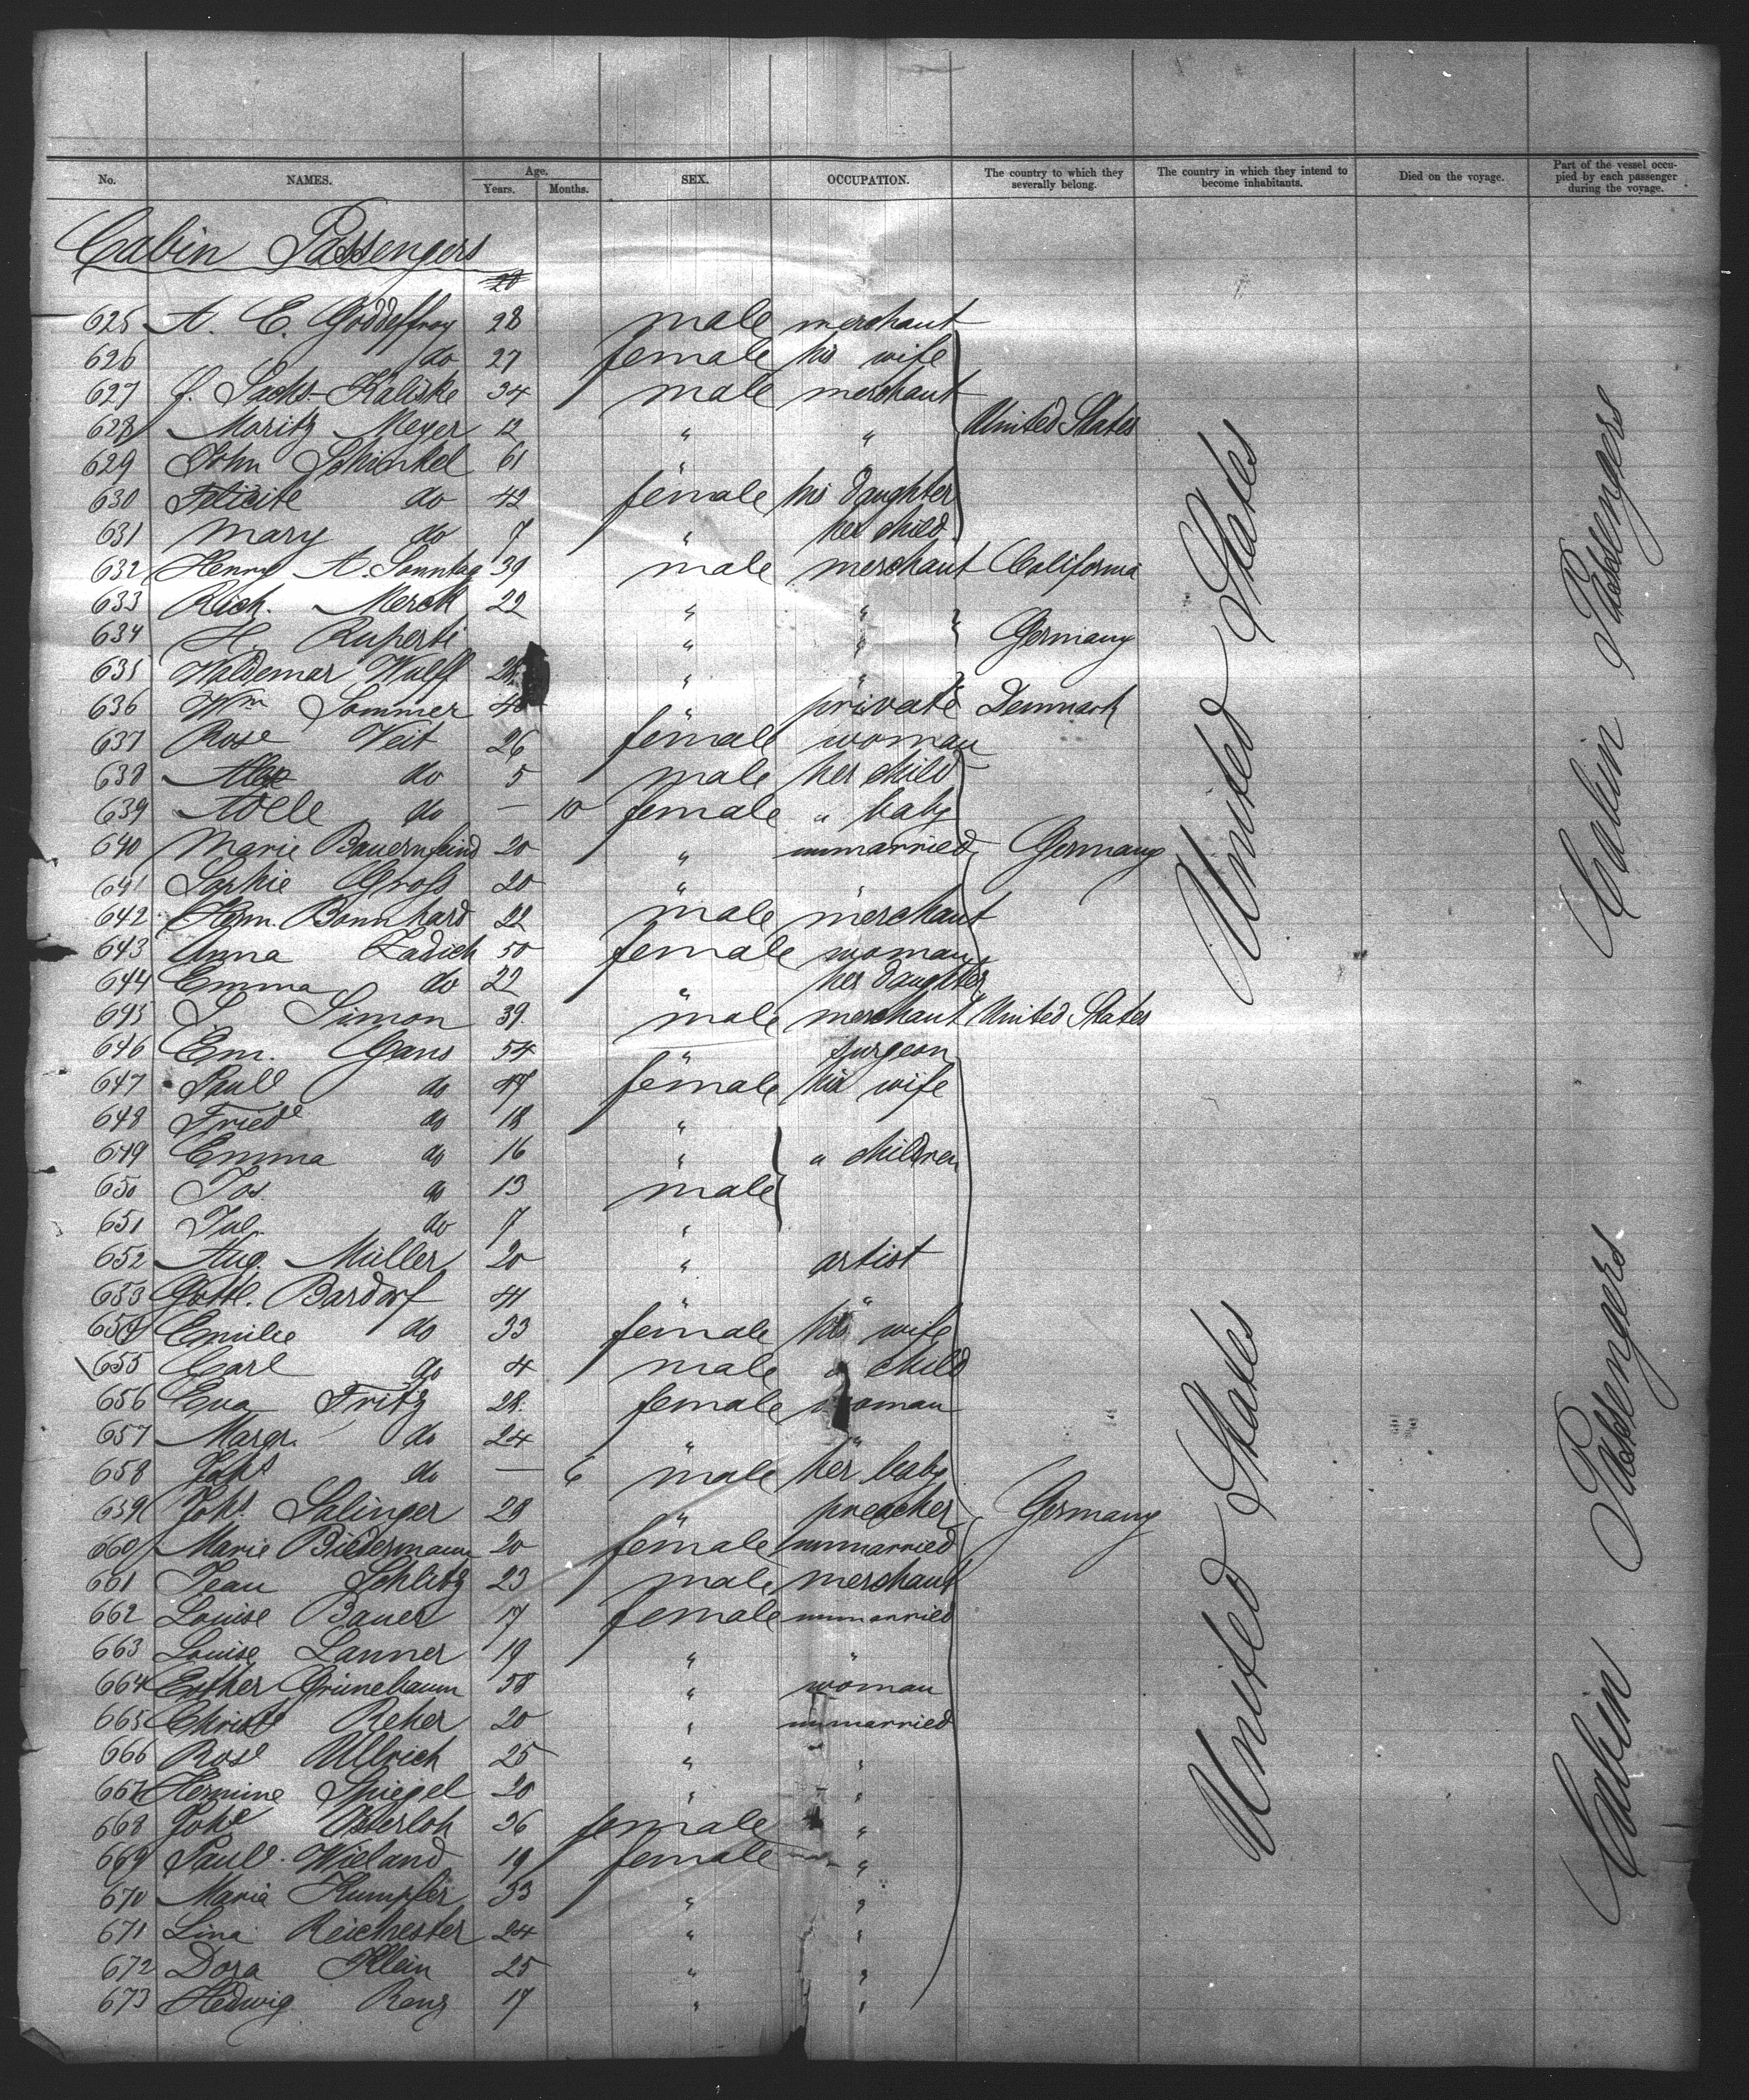 No. NAMES. Age. Years. Months. SEX. OCCUPATION. The country to which they severally belong. The country in which they intend to become inhabitants. Died on the voyage. Part of the vessel occupied by each passenger during the voyage.
Cabin Passengers
625 A. E. Goddeffroy 28 male merchant
626 do 27 female his wife
627 J. Sachs-Kaliske 34 male merchant
628 Moritz Meyer 12 " " United States
629 John Schinkel 61 " "
630 Felicite do 42 female his daughter
631 Mary do 7 " her child
632 Henry A. Sonntag 39 male merchant California
633 Rich. Merck 22 " "
634 H. Ruperti " " Germany
635 Waldemar Wulff " "
636 Wm Sommer " private Denmark
637 Rose Veit 26 female woman
638 Alex do 5 male her child
639 Adele do — 10 female " baby
640 Marie Bauernfeind 20 " unmarried Germany
641 Sophie Gross 20 " "
642 Herm. Bonnhard 22 male merchant
643 Anna Ladich 50 female woman
644 Emma do 22 " her daughter
645 S Simon 39 male merchant United States
646 Em. Gans 54 " surgeon
647 Paule do 47 female his wife
648 Friede do 18 "
649 Emma do 16 " " children
650 Jos. do 13 male
651 Jul. do 7 "
652 Aug. Müller 20 " artist
653 Gottl. Bardorf 41 " "
654 Emilie do 33 female his wife
655 Carl do 4 male " child
656 Eva Fritz 28 female woman
657 Margr. do 24 " "
658 Johs do — 6 male her baby
659 Johs. Salinger 28 " preacher Germany
660 Marie Biedermann 20 female unmarried
661 Jean Schlitz 23 male merchant
662 Louise Bauer 17 female unmarried
663 Louise Lanner 19 " "
664 Esther Grünebaum 58 " woman
665 Christe Reher 20 " unmarried
666 Rose Ullrich 25 " "
667 Hermine Spiegel 20 " "
668 Johe Osterloh 26 female "
669 Paule Wieland 19 female "
670 Maria Kumpfer 33 " "
671 Lina Reichester 24 " "
672 Dora Klein 25 " "
673 Hedwig Renz 17 " "
United States
United States
Cabin Passengers
Cabin Passengers